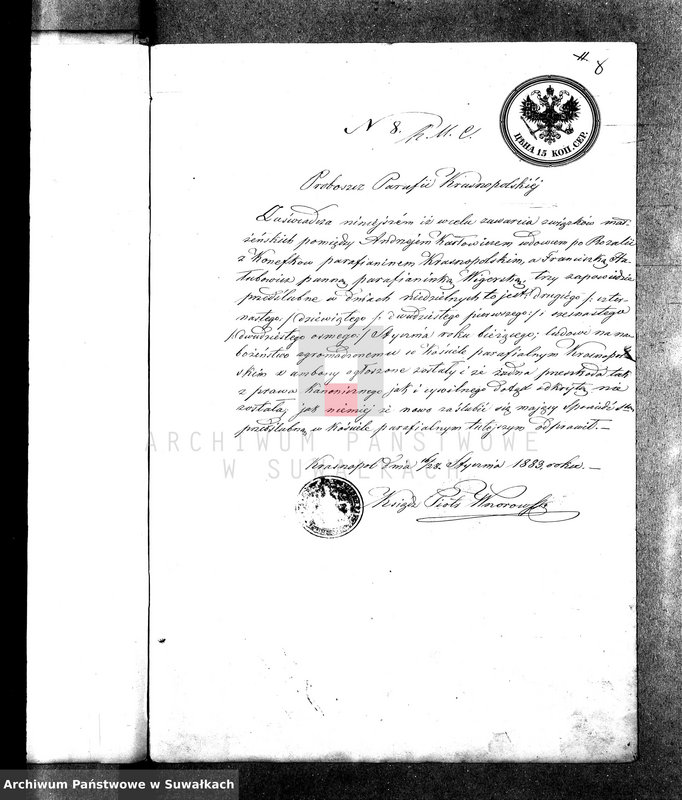 8
N 8. K. M. C.
ЦѢНА 15 КОП. СЕР.
Proboszcz Parafii Krasnopolskiéj
Zaświadcza niniejszém iż w celu zawarcia związków mał-
żeńskich pomiędzy Andrzejem Karłowiczem wdowcem po Rozalii
z Konefków parafianinem Krasnopolskim, a Franciszką Ha-
łubowicz panną parafianinką Wigerską, trzy zapowiedzie
przedślubne w dniach niedzielnych to jest: drugiego /: czter-
nastego :/ dziewiątego /: dwudziestego pierwszego :/ i szesnastego
/: dwudziestego osmego :/ Stycznia roku bieżącego; ludowi na na-
bożeństwo zgromadzonemu w kościele parafialnym Krasnopol-
skim z ambony ogłoszone zostały i że żadna przeszkoda tak
z prawa kanonicznego jak i cywilnego dotąd odkrytą nie
została, jak niemniej iż nowo zaślubić się mający Spowiedź
przedślubną w kościele parafialnym tutejszym odprawił. —
Krasnopol dnia 16/28 Stycznia 1883 roku. —
Ksiądz Piotr
ARCHIWUM PAŃSTWOWE
W SUWAŁKACH
Archiwum Państwowe w Suwałkach